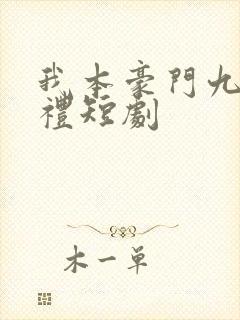 我本豪門九
禮短劇
木一单